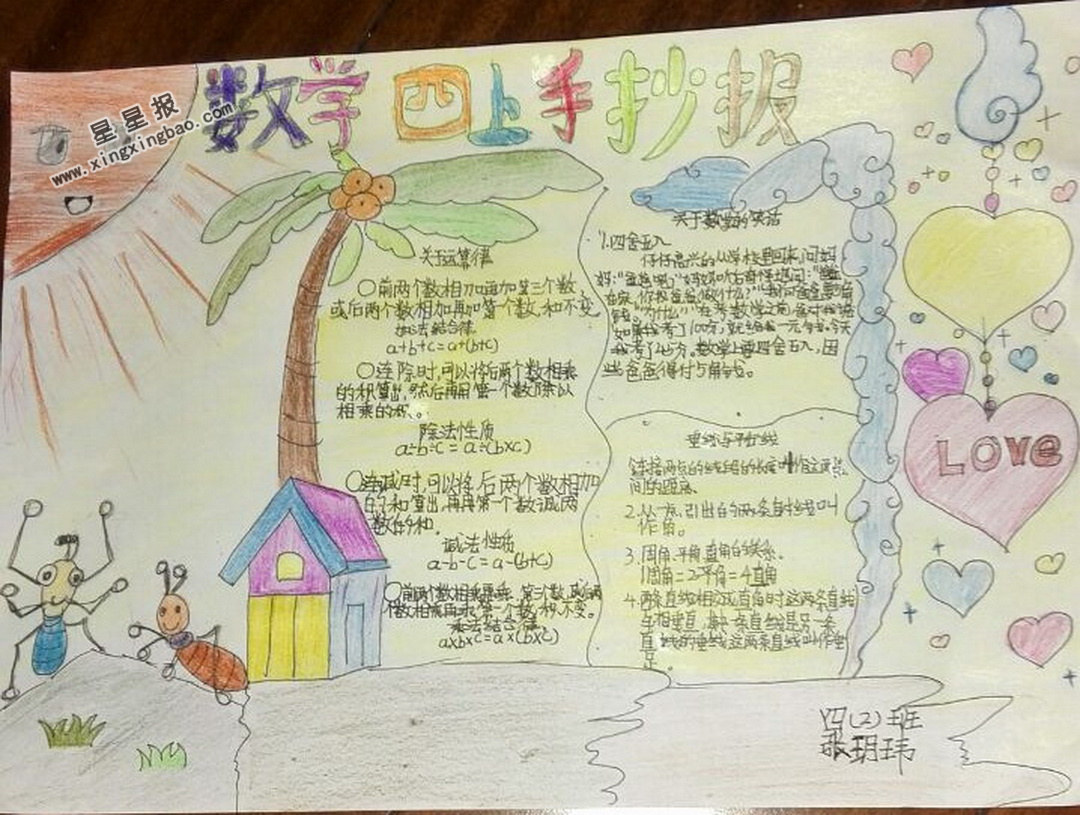 数学四上手抄报
星星报
www.xingxingbao.com
关于运算律
〇前两个数相加再加第三个数
或后两个数相加再加第一个数,和不变
加法结合律
a+b+c=a+(b+c)
〇连除时,可以将后两个数相乘
的积算出,然后再用第一个数除以
相乘的积。
除法性质
a÷b÷c=a÷(b×c)
〇连减时,可以将后两个数相加
的和算出,再用第一个数减两
数的和。
减法性质
a-b-c=a-(b+c)
〇前两个数相乘再乘第三个数,或后两
个数相乘再乘第一个数,积不变。
乘法结合律
a×b×c=a×(b×c)
关于数学的笑话
1.四舍五入
仔仔高兴的从学校里回来,问妈
妈:
如果我考了100分,就给我一元
我考了45分。数学上要四舍五入,因
此爸爸得付
垂线与平行线
连接两点的线段的长度叫作这两点
间的距离。
2.从一点引出的两条射线叫
作角。
3.周角、平角、直角的关系。
1周角=2平角=4直角
4.两条直线相交成直角时这两条直线
互相垂直,其中一条直线是另一条
直线的垂线这两条直线叫作垂
足。
LOVe
四(2)班
张玥玮